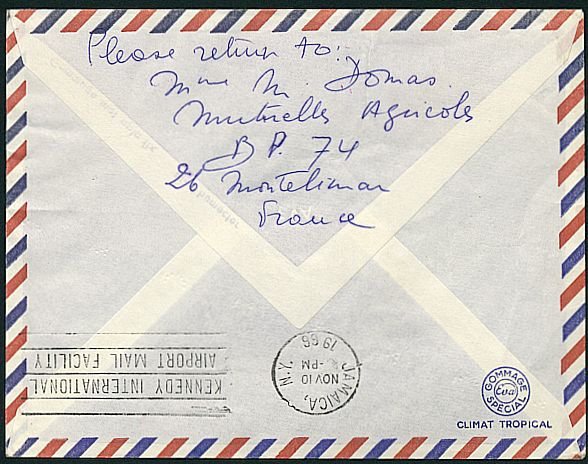 Please return to:-
Mme M. Domas.
Mutuelles Agricoles
B P. 74
26 Montelimar
France
KENNEDY INTERNATIONAL
AIRPORT MAIL FACILITY
JAMAICA, N.Y.
NOV 10
-PM
1966
GOMMAGE
Eva
SPECIAL
CLIMAT TROPICAL